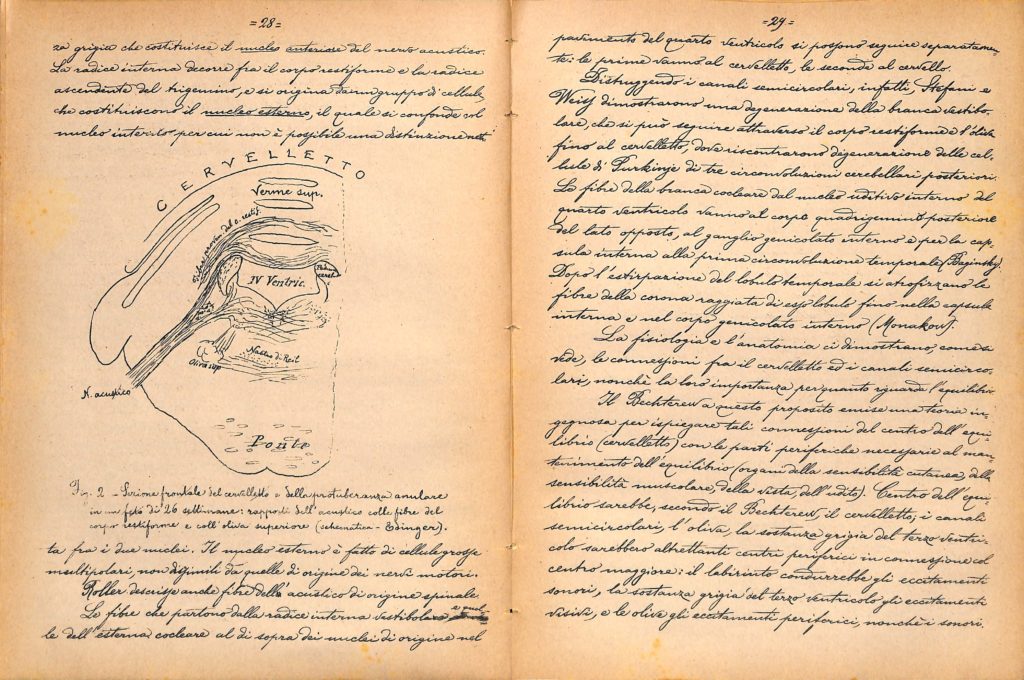 =28=
za grigia che costituisce il nucleo anteriore del nervo acustico.
La radice interna decorre fra il corpo restiforme e la radice
ascendente del trigemino, e si origina da un gruppo di cellule,
che costituiscono il nucleo esterno, il quale si confonde col
nucleo interno per cui non è possibile una distinzione net-
CERVELLETTO
Verme sup.
IV Ventric.
Oliva sup
N. acustico
Ponte
Fig. 2 - Sezione frontale del cervelletto e della protuberanza anulare
in un feto di 26 settimane: rapporti dell'acustico colle fibre del
corpo restiforme e coll'oliva superiore (schematica - Edinger).
ta fra i due nuclei. Il nucleo esterno è fatto di cellule grosse
multipolari, non dissimili da quelle di origine dei nervi motori.
Roller descisse anche fibre dell'acustico di origine spinale.
Le fibre che partono dalla radice interna vestibolare e quel-
le dell'esterna cocleare al di sopra dei nuclei di origine nel
=29=
pavimento del quarto ventricolo si possono seguire separatamen-
te: le prime vanno al cervelletto, le seconde al cervello.
Distruggendo i canali semicircolari, infatti, Stefani e
Weiss dimostrarono una degenerazione della branca vestibo-
lare, che si può seguire attraverso il corpo restiforme e l'oliva
fino al cervelletto, dove riscontrarono digenerazione delle cel-
lule di Purkinje di tre circonvoluzioni cerebellari posteriori.
Le fibre della branca cocleare dal nucleo uditivo interno del
quarto ventricolo vanno al corpo quadrigemino posteriore
del lato opposto, al ganglio genicolato interno e per la cap-
sula interna alla prima circonvoluzione temporale (Baginsky).
Dopo l'estirpazione del lobulo temporale si atrofizzano le
fibre della corona raggiata di esso lobulo fino nella capsula
interna e nel corpo genicolato interno (Monakow).
La fisiologia e l'anatomia ci dimostrano, come si
vede, le connessioni fra il cervelletto ed i canali semicirco-
lari, nonchè la loro importanza per quanto riguarda l'equilibrio.
Il Bechterew a questo proposito emise una teoria in-
gegnosa per ispiegare tali connessioni del centro dell'equi-
librio (cervelletto) con le parti periferiche necessarie al man-
tenimento dell'equilibrio (organi della sensibilità cutanea, della
sensibilità muscolare, della vista, dell'udito). Centro dell'equi-
librio sarebbe, secondo il Bechterew, il cervelletto; i canali
semicircolari, l'oliva, la sostanza grigia del terzo ventri-
colo sarebbero altrettanti centri periferici in connessione col
centro maggiore: il labirinto condurrebbe gli eccitamenti
sonori, la sostanza grigia del terzo ventricolo gli eccitamenti
visivi, e le olive gli eccitamenti periferici, nonchè i sonori.